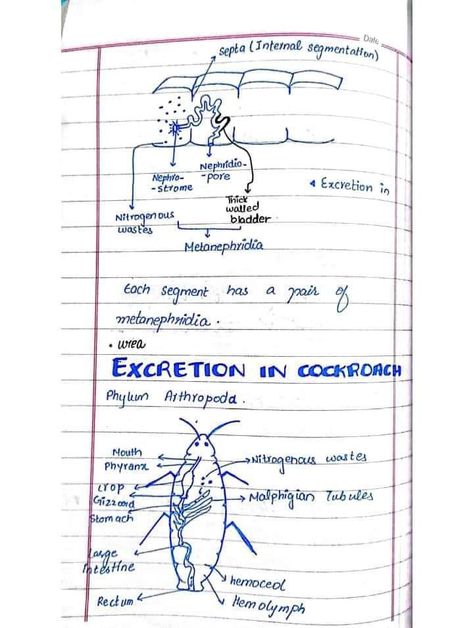 Date
Septa (Internal segmentation)
Nephro-
-strome
Nephridio-
-pore
Excretion in
Nitrogenous
wastes
Thick
walled
bladder
Metanephridia
Each segment has a pair of
metanephridia.
• urea
EXCRETION IN COCKROACH
Phylum Arthropoda.
Mouth
Phyranx
Nitrogenous wastes
Crop
Gizzard
Malphigian Tubules
Stomach
Large
intestine
hemoceol
Rectum
Hemolymph